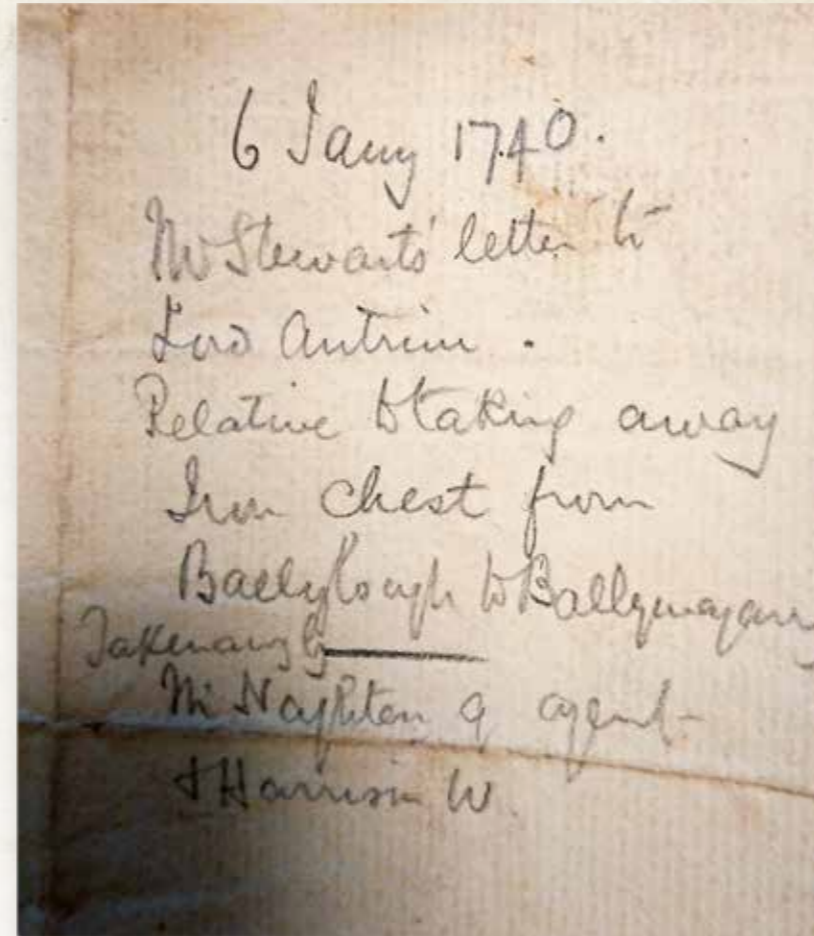 6 Jany 1740.
Mr Stewarts' letter to
Lord Antrim.
Relative to taking away
Iron chest from
Ballylough to Ballymagarry
Taken away by
Mc Naghten agent
& Harrison W